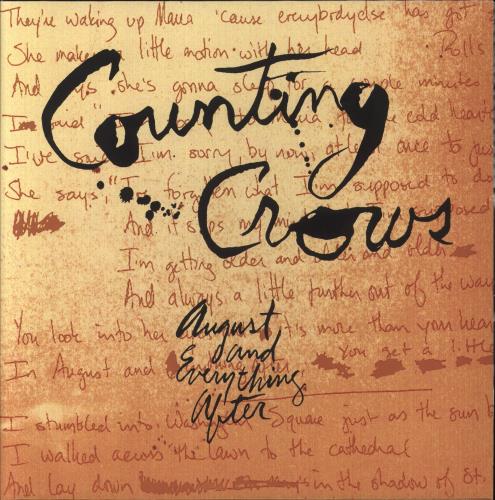 They're waking up Maria 'cause everybody else has got
She makes a little motion with her head Rolls
And says she's gonna sleep for a couple minutes
I said
Counting
I've I'm sorry by now, at least once to
cold hearts
She says, I've forgotten what I'm supposed to do
Crows
And it slips my
I'm getting older and older and older
And always a little further out of the way
You look into her it's more than you hear
August
and
Everything
After
You get a little
In August and
I stumbled into Square just as the sun
I walked across the lawn to the cathedral
And lay down in the shadow of St.